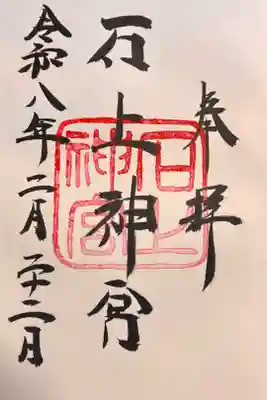 奉拝
石上神宮
石上神宮
令和八年二月二十二日